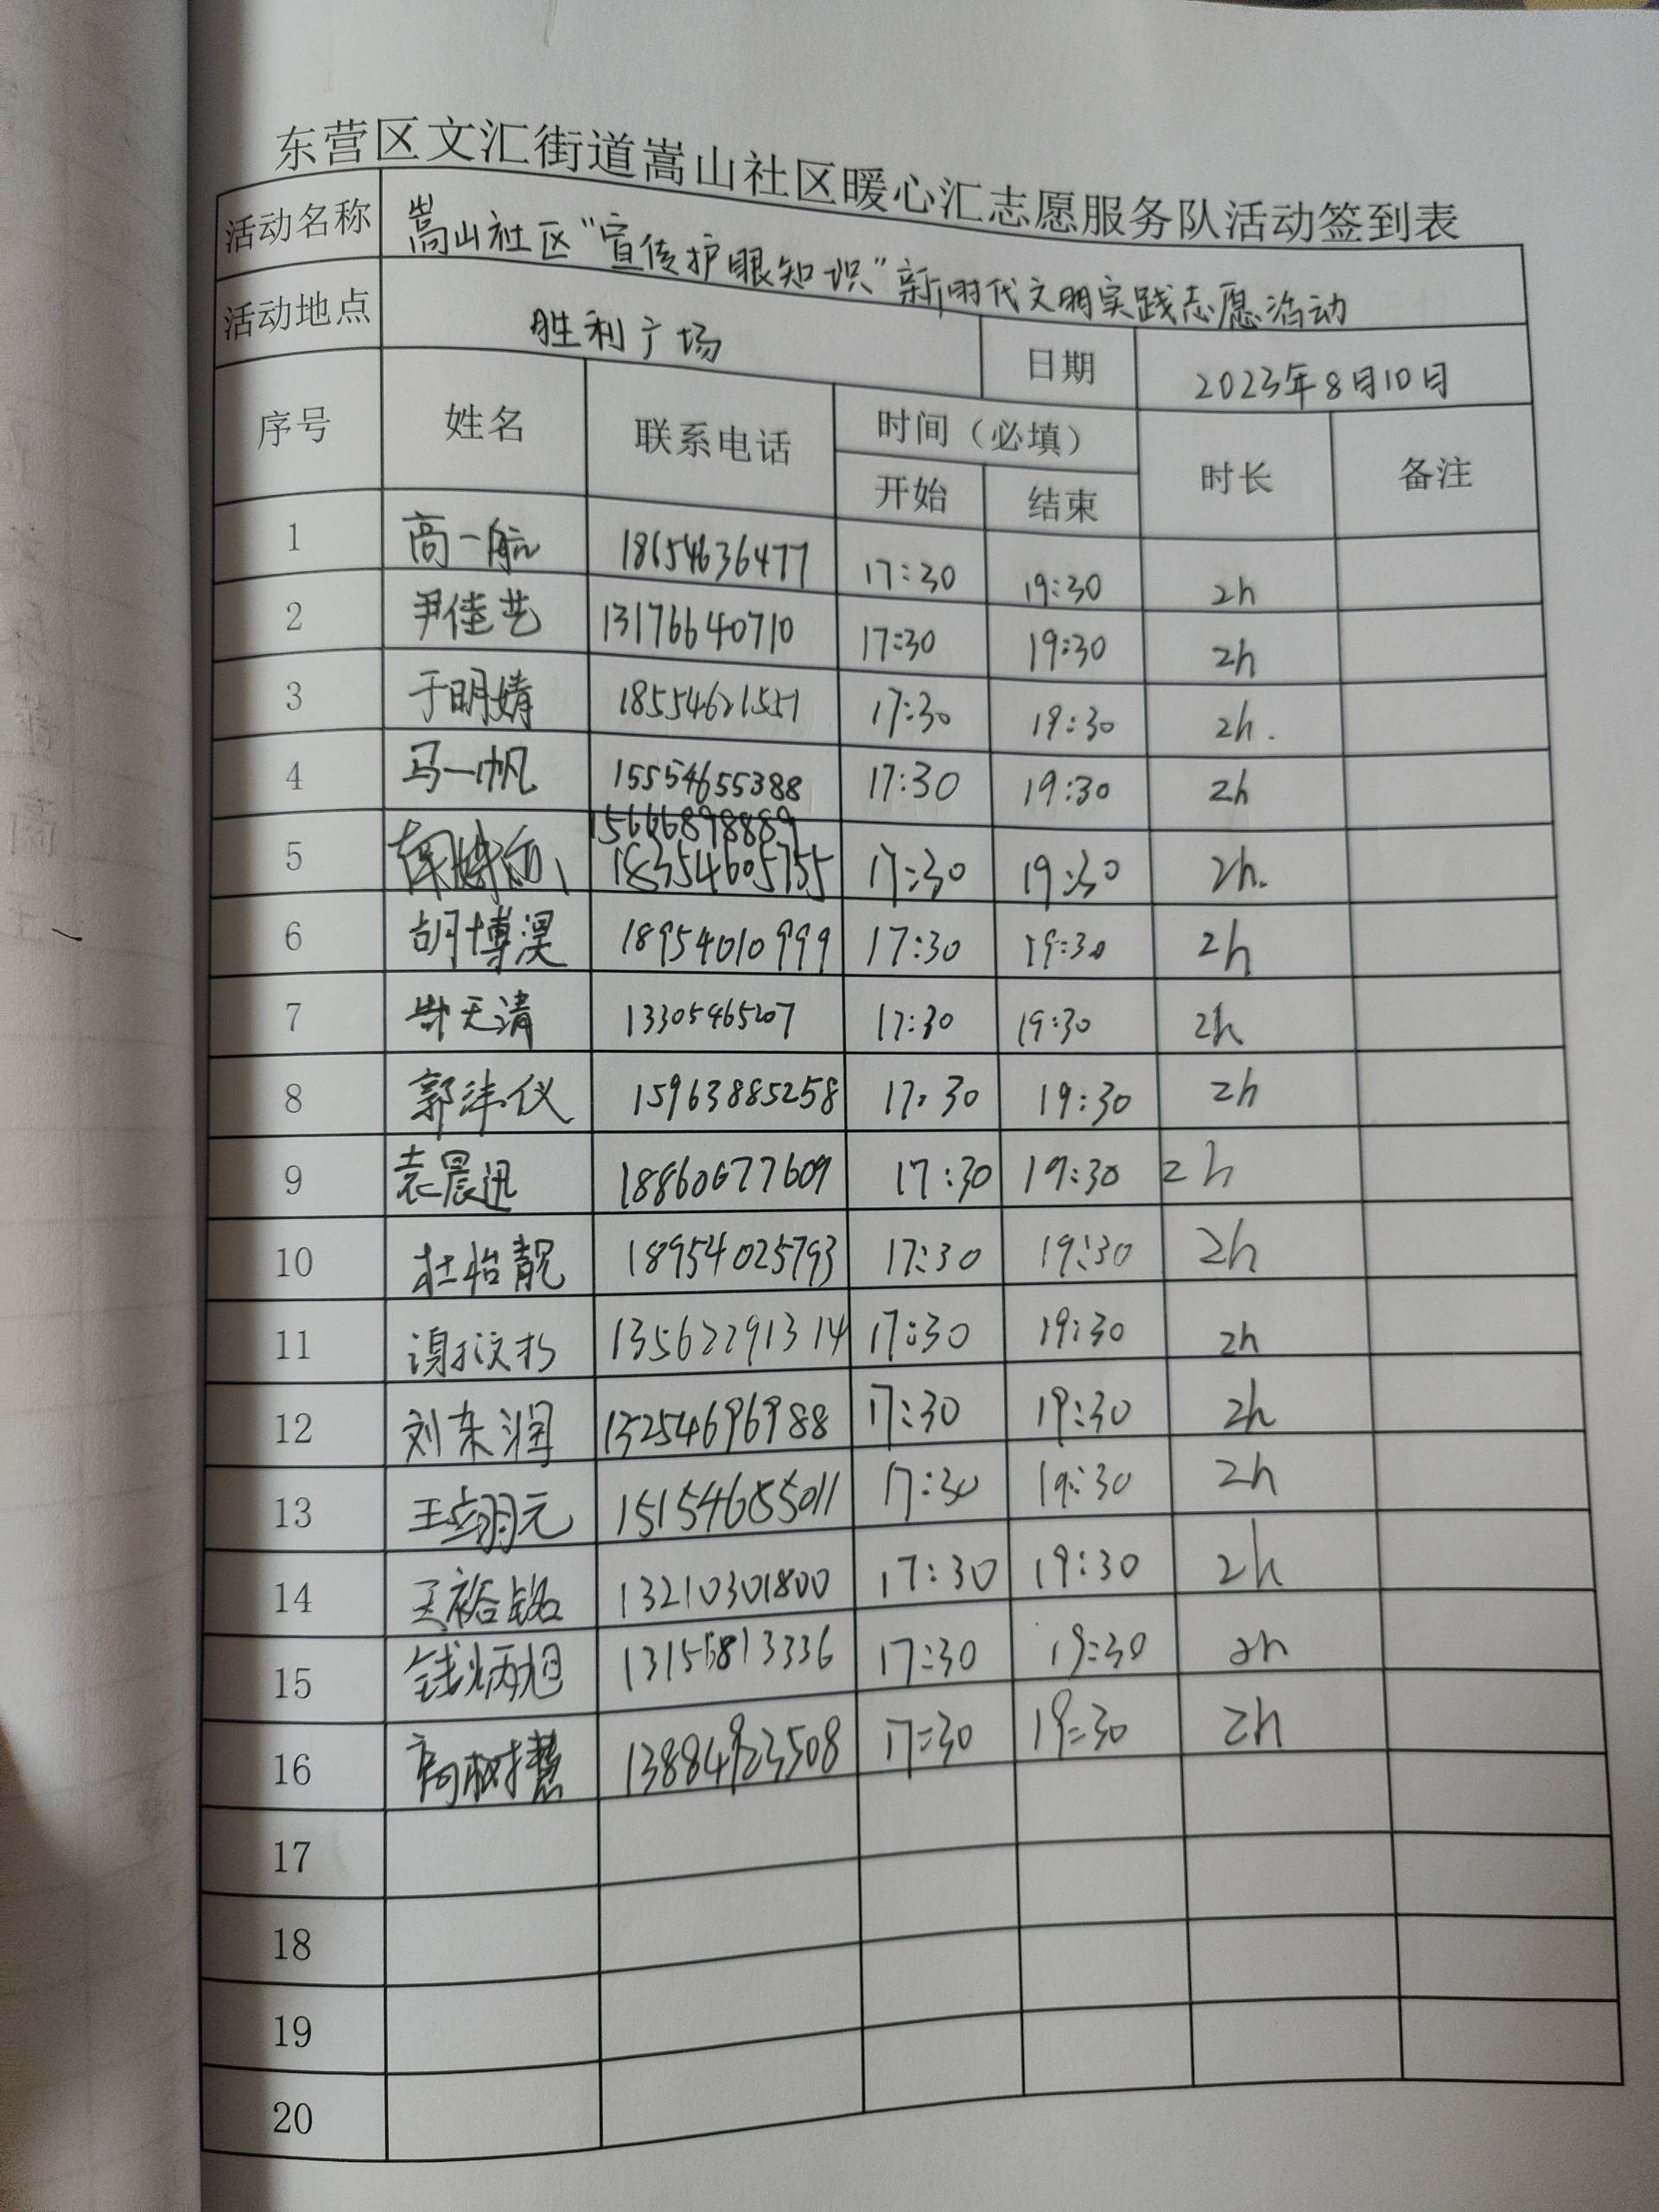 东营区文汇街道嵩山社区暖心汇志愿服务队活动签到表
活动名称 嵩山社区“宣传护眼知识”新时代文明实践志愿活动
活动地点 胜利广场 日期 2023年8月10日
序号 姓名 联系电话 时间（必填） 时长 备注
开始 结束
1 高一航 18654636477 17:30 19:30 2h
2 尹佳艺 13176640710 17:30 19:30 2h
3 于明婧 18554621551 17:30 19:30 2h.
4 马一帆 15554655388 17:30 19:30 2h
15666898889
5 18354605755 17:30 19:30 2h.
6 胡博淏 18954010999 17:30 19:30 2h
7 天清 13305465207 17:30 19:30 2h
8 郭沣仪 15963885258 17:30 19:30 2h
9 袁晨迅 18860677609 17:30 19:30 2h
10 杜怡靓 18954025793 17:30 19:30 2h
11 13562291314 17:30 19:30 2h
12 刘东润 13254696988 17:30 19:30 2h
13 王翊元 15154655011 17:30 19:30 2h
14 王裕铭 13210301800 17:30 19:30 2h
15 钱炳旭 13155813336 17:30 19:30 2h
16 高树慧 13884923508 17:30 19:30 2h
17
18
19
20